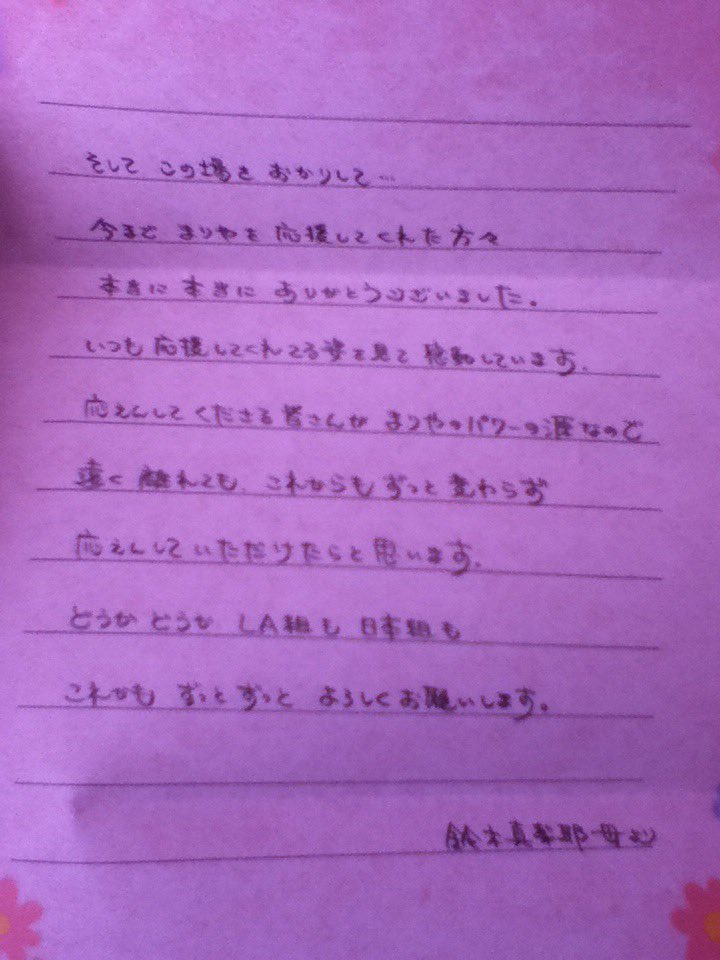 そして この場を おかりして…
今まで まりやを 応援してくれた方々
本当に 本当に ありがとうございました。
いつも 応援してくれてる姿を見て 感動しています。
応えんしてくださる 皆さんが まりやのパワーの源なので
遠く 離れても、これからも ずっと 変わらず
応えんしていただけたらと思います。
どうか どうか LA組も 日本組も
これかも ずっと ずっと よろしくお願いします。
鈴木真梨耶 母より